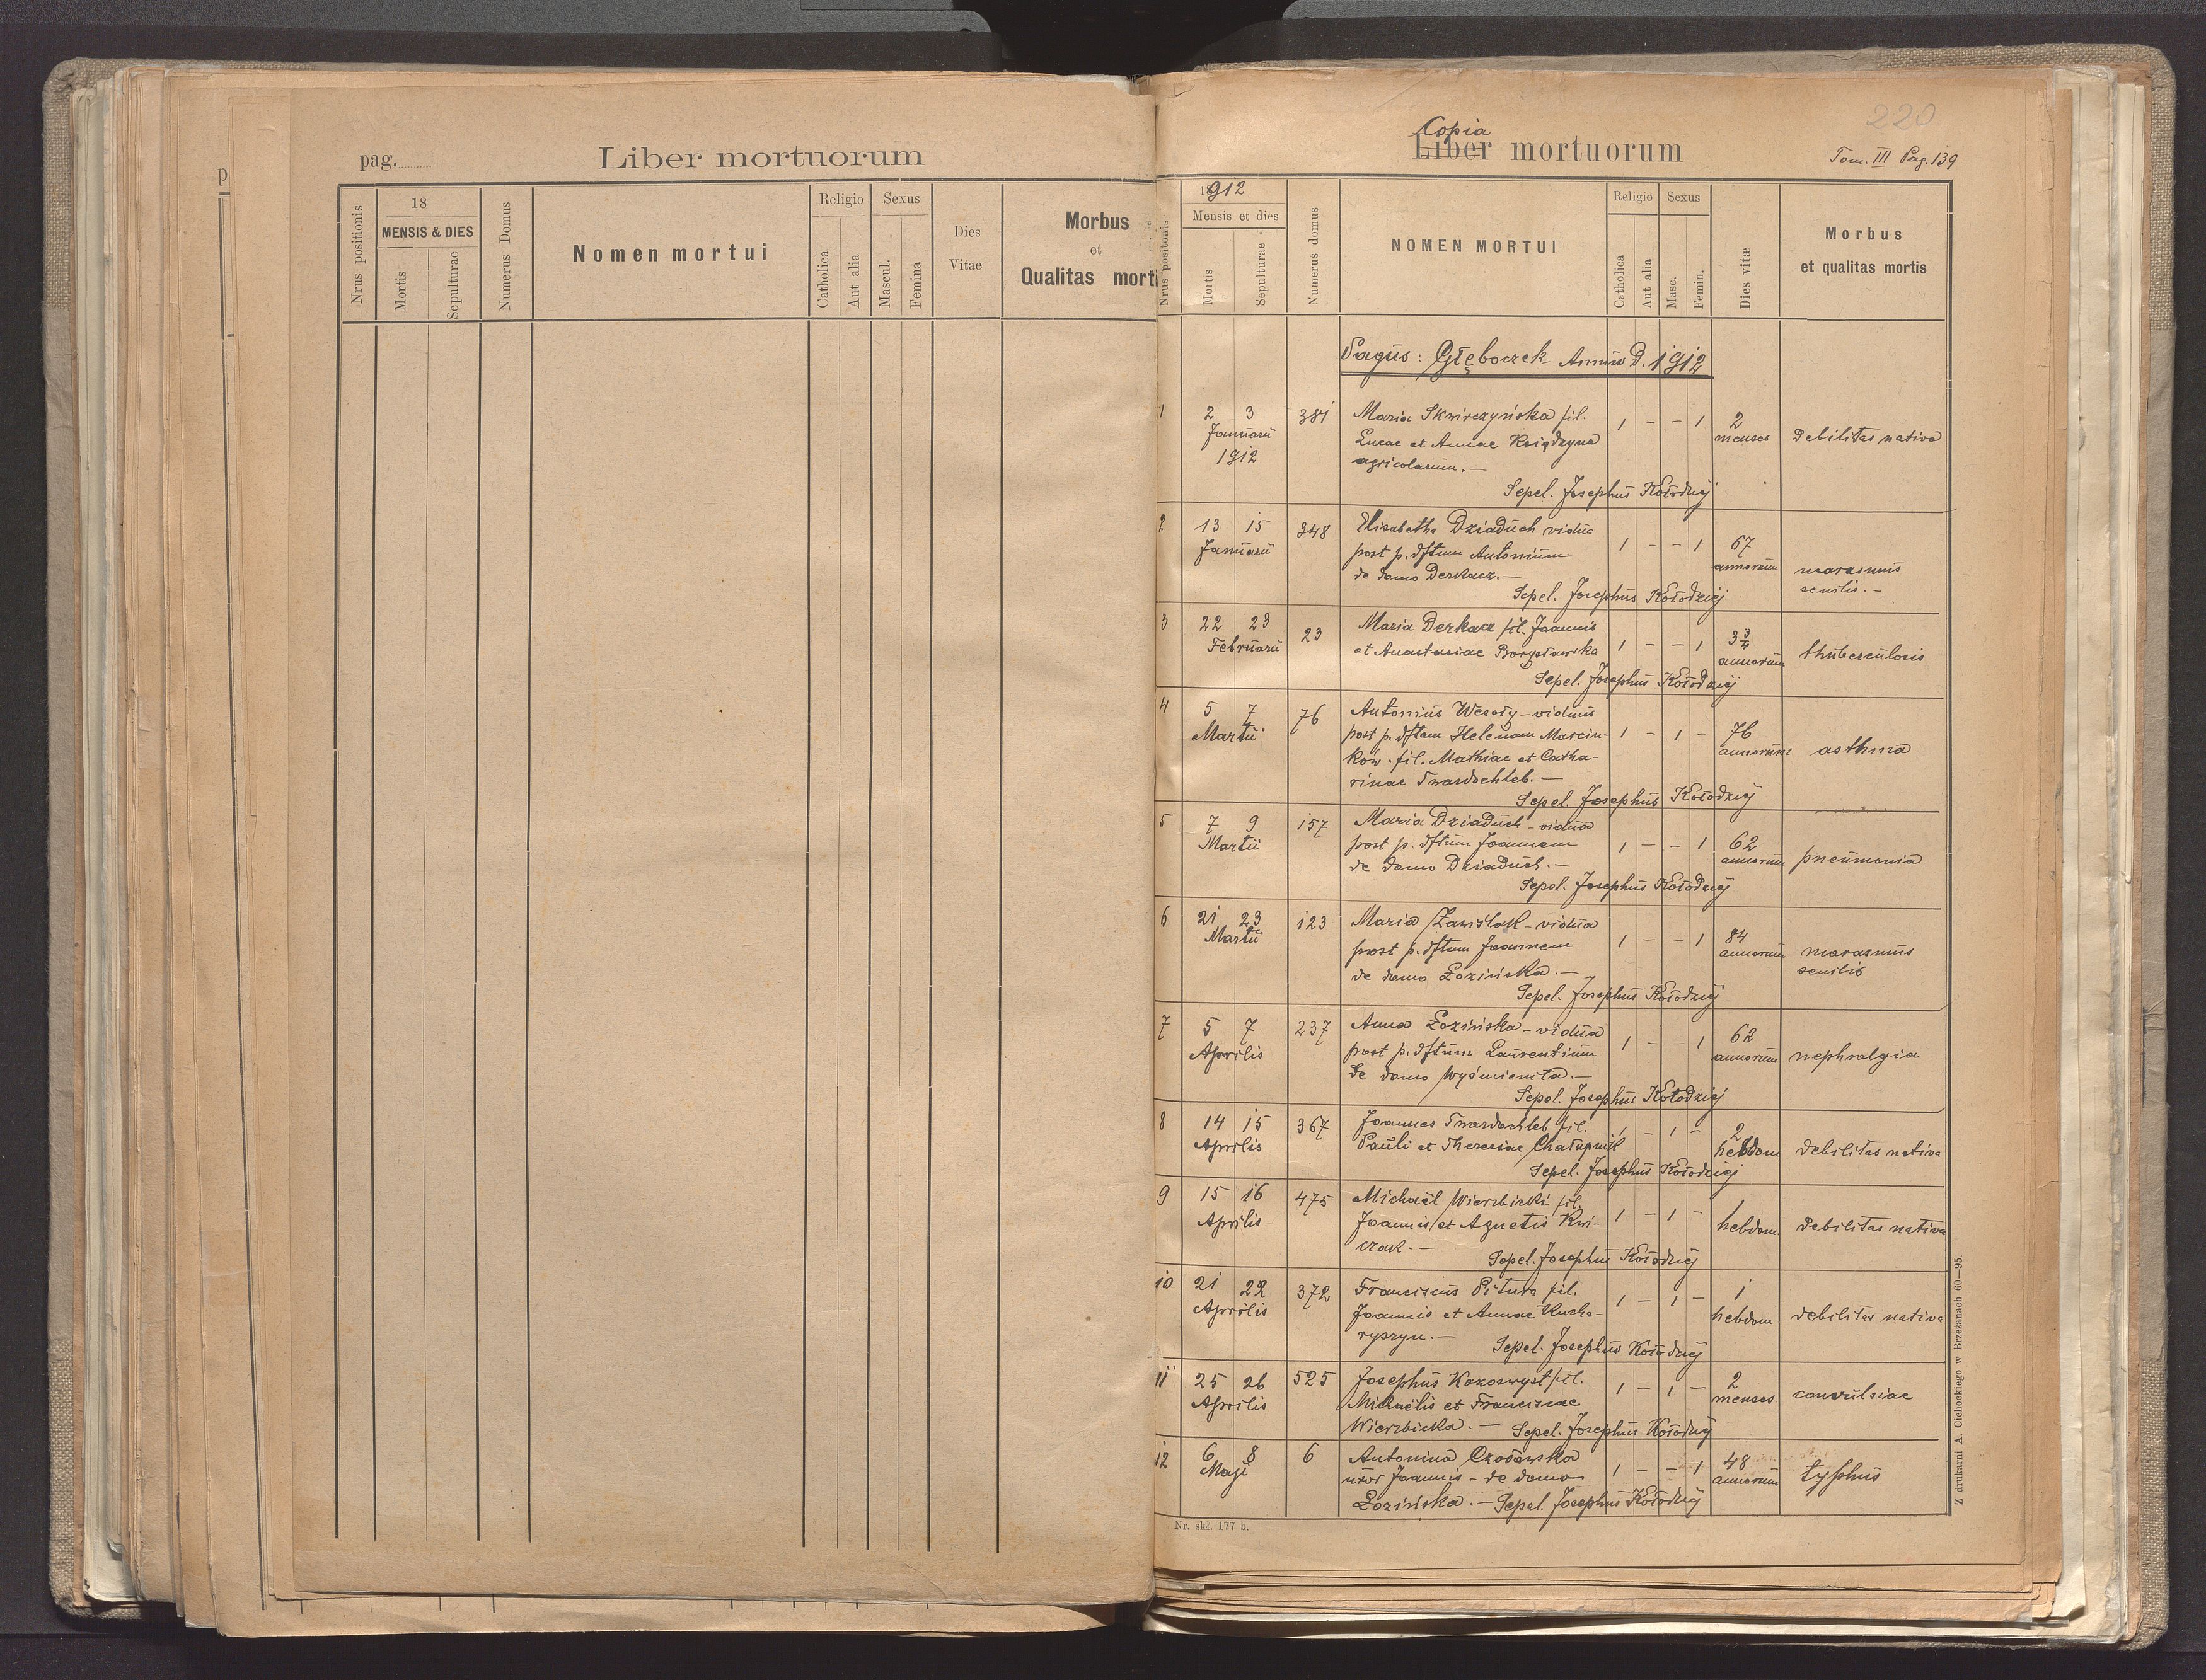 pag.
Liber mortuorum
Nrus positionis
18
MENSIS & DIES
Mortis
Sepulturae
Numerus Domus
Nomen mortui
Religio
Catholica
Aut alia
Sexus
Mascul.
Femina
Dies
Vitae
Morbus
et
Qualitas morti
p
220
Copia
Liber mortuorum
Tom. III Pag. 139
Nrus positionis
1912
Mensis et dies
Mortis
Sepulturae
Numerus domus
NOMEN MORTUI
Religio
Catholica
Aut alia
Sexus
Masc.
Femin.
Dies vitæ
Morbus
et qualitas mortis
Pagus: Głęboczek Anno D. 1912
1 2 3 381 Maria Skwirczyńska fil. 1 - - 1 2
Januarii Lucae et Annae Książyna menses debilitas nativa
1912 agricolarum. —
Sepel. Josephus Kołodziej
2 13 15 348 Elisabetha Dziaduch vidua 1 - - 1 67
Januarii post p. dftum Antonium annorum marasmus
de domo Derkacz. — senilis. -
Sepel. Josephus Kołodziej
3 22 23 23 Maria Derkacz fil. Joannis 1 - - 1 3 3/4
Februarii et Anastasiae Borysławska annorum thuberculosis
Sepel. Josephus Kołodziej
4 5 7 76 Antonius Wesoły - viduus 1 - 1 - 76
Martii post p. dftam Helenam Marcin- annorum asthma
kow. fil. Mathiae et Catha-
rinae Twardochleb. —
Sepel. Josephus Kołodziej
5 7 9 157 Maria Dziaduch - vidua 1 - - 1 62
Martii post p. dftum Joannem annorum pneumonia
de domo Dziaduch. —
Sepel. Josephus Kołodziej
6 21 23 123 Maria Zawiślak - vidua 1 - - 1 84
Martii post p. dftum Joannem annorum marasmus
de domo Łozińska. — senilis
Sepel. Josephus Kołodziej
7 5 7 237 Anna Łozińska - vidua 1 - - 1 62
Aprilis post p. dftum Laurentium annorum nephralgia
de domo Wyśmienita. —
Sepel. Josephus Kołodziej
8 14 15 367 Joannes Twardochleb fil. 1 - 1 - 2
Aprilis Pauli et Theresiae Chałupnik hebdom debilitas nativa
Sepel. Josephus Kołodziej
9 15 16 475 Michaël Wierzbicki fil. 1 - 1 - 1
Aprilis Joannis et Agnetis Kwi- hebdom. debilitas nativa
czak. —
Sepel. Josephus Kołodziej
10 21 22 372 Franciscus Pitura fil. 1 - 1 - 1
Aprilis Joannis et Annae Kucha- hebdom debilitas nativa
ryszyn. —
Sepel. Josephus Kołodziej
11 25 26 525 Josephus fil. 1 - 1 - 2
Aprilis Michaëlis et Franciscae menses convulsiae
Wierzbicka. — Sepel. Josephus Kołodziej
12 6 8 6 Antonina 1 - - 1 48
Maji uxor Joannis - de domo annorum typhus
Łozińska. — Sepel. Josephus Kołodziej
Nr. skł. 177 b.
Z drukarni A. Cichockiego w Brzeżanach 60—95.